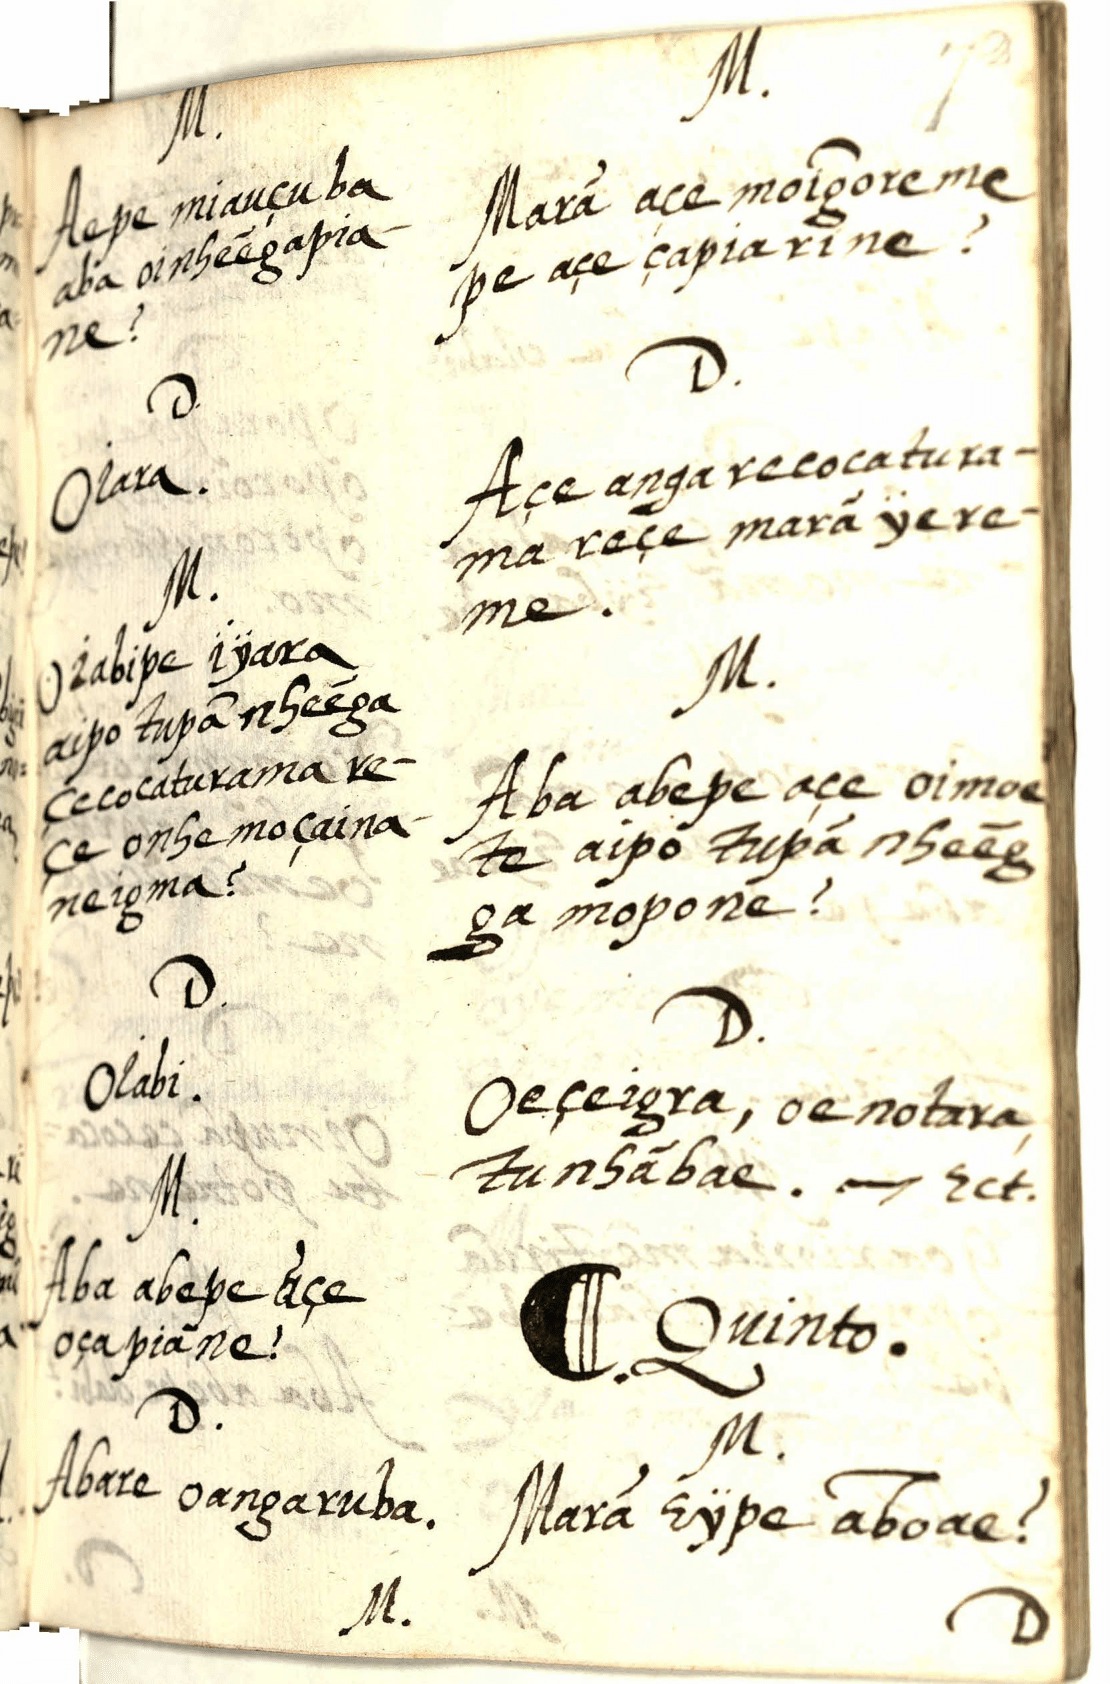 M.
Aepe miauçuba
aba oinheẽgapia-
ne?
D.
Oiara.
M.
Oiabipe iÿara
aipo tupã nheẽga
çecocaturama re-
çe onhemoçaina-
neigma?
D.
Oiabi.
M.
Aba abepe açe
oçapiãne?
D.
Abare oangaruba.
M.
72
M.
Marã açe moigoreme
pe açe çapiarine?
D.
Açe angarecocatura-
ma reçe marã ÿere-
me.
M.
Aba abepe açe oimoe
te aipo tupã nheẽg
ga mopone?
D.
Oeçeigra, oenotara,
tunhãbae. — &ct.
¶. Quinto.
M.
Marã eÿpe aboae?
D